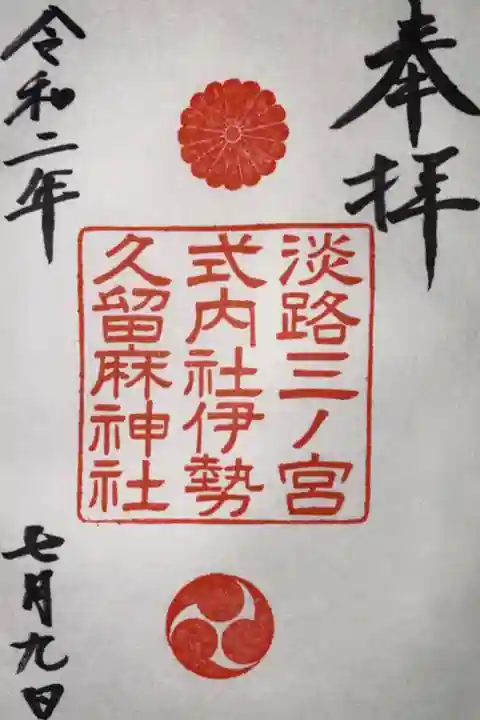 奉拝
淡路三ノ宮
式内社伊勢
久留麻神社
令和二年
七月九日